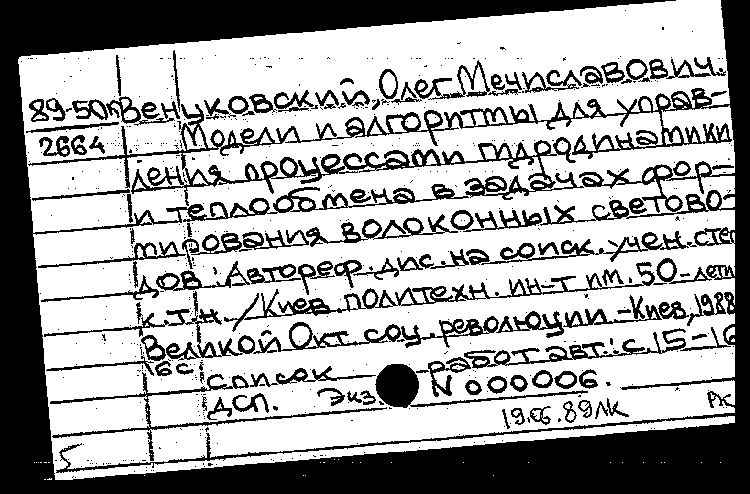 89-50к Венцковский, Олег Мечиславович.
2664 Модели и алгоритмы для управ-
ления процессами гидродинамики
и теплообмена в задачах фор-
мирования волоконных светово-
дов: Автореф. дис. на соиск. учен. степ
к.т.н. /Киев. политехн. ин-т им. 50-лети
Великой Окт. соц. революции. - Киев, 1988
16с
список работ авт.: с. 15-16
ДСП. Экз. N 000006.
19.06.89 ЛК РЖ
5